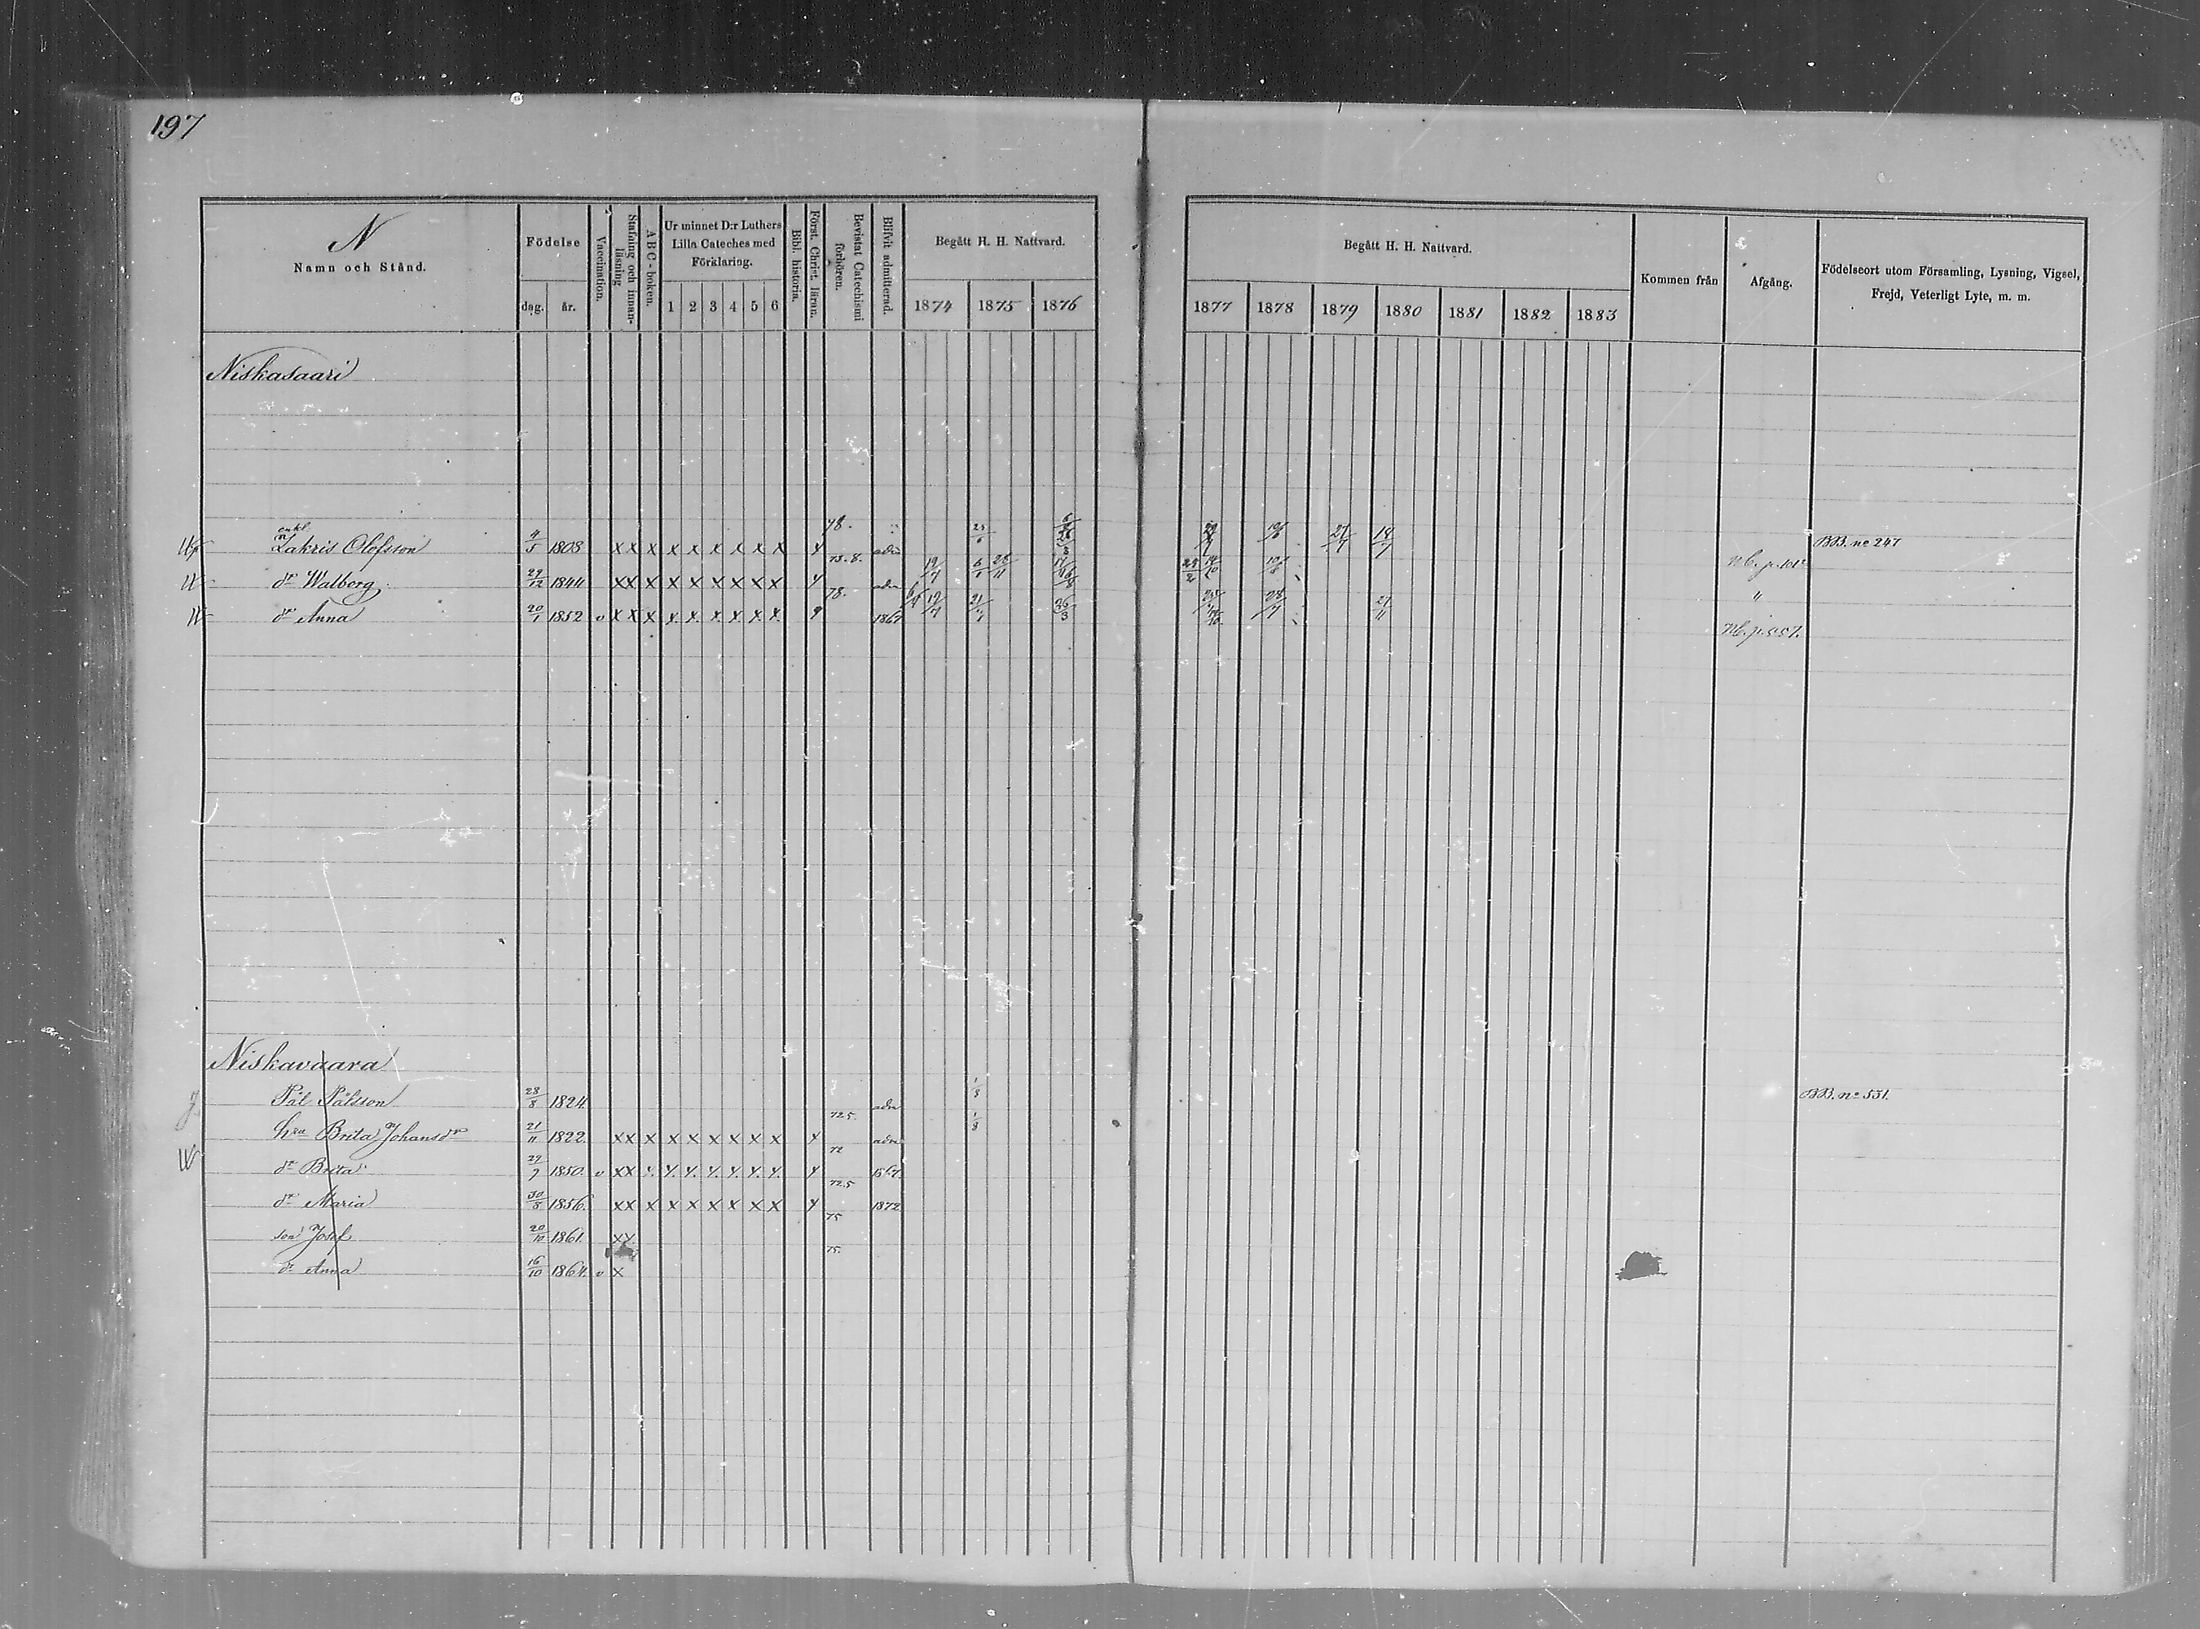 197
N
Namn och Stånd.
Födelse
dag.
år.
Vaccination.
Stafning och innan-läsning
ABC-boken.
Ur minnet D:r Luthers
Lilla Cateches med
Förklaring.
1 2 3 4 5 6
Bibl. historia.
Först. Christ. läran.
Bevistat Catechismi förhören.
Blifvit admitterad.
Begått H. H. Nattvard.
1874 1875 1876
Begått H. H. Nattvard.
1877 1878 1879 1880 1881 1882 1883
Kommen från
Afgång.
Födelseort utom Församling, Lysning, Vigsel,
Frejd, Veterligt Lyte, m. m.
Niskasaari
enkl
Zakris Olofsson 4/5 1808 xx x x x x x x x 78. adm 27/7 14/7 BB. no 247
dr Walborg 29/12 1844 xx x x x x x x x 73.8. adm 19/7
dr Anna 20/1 1852 v xx x x x x x x x 78. 1867 19/7 28/7 27/11
Niskavaara
Pål Pålsson 28/8 1824 adm 1/8 BB. no 551.
hru Brita Johansdr 21/11 1822 xx x x x x x x x 72.5 adm 1/8
dr Brita 29/7 1850 v xx x x x x x x x 72 1867
dr Maria 30/8 1856 xx x x x x x x x 72.5 1872
son Josef 20/10 1861 xx 75
dr Anna 16/10 1864 v x 75.